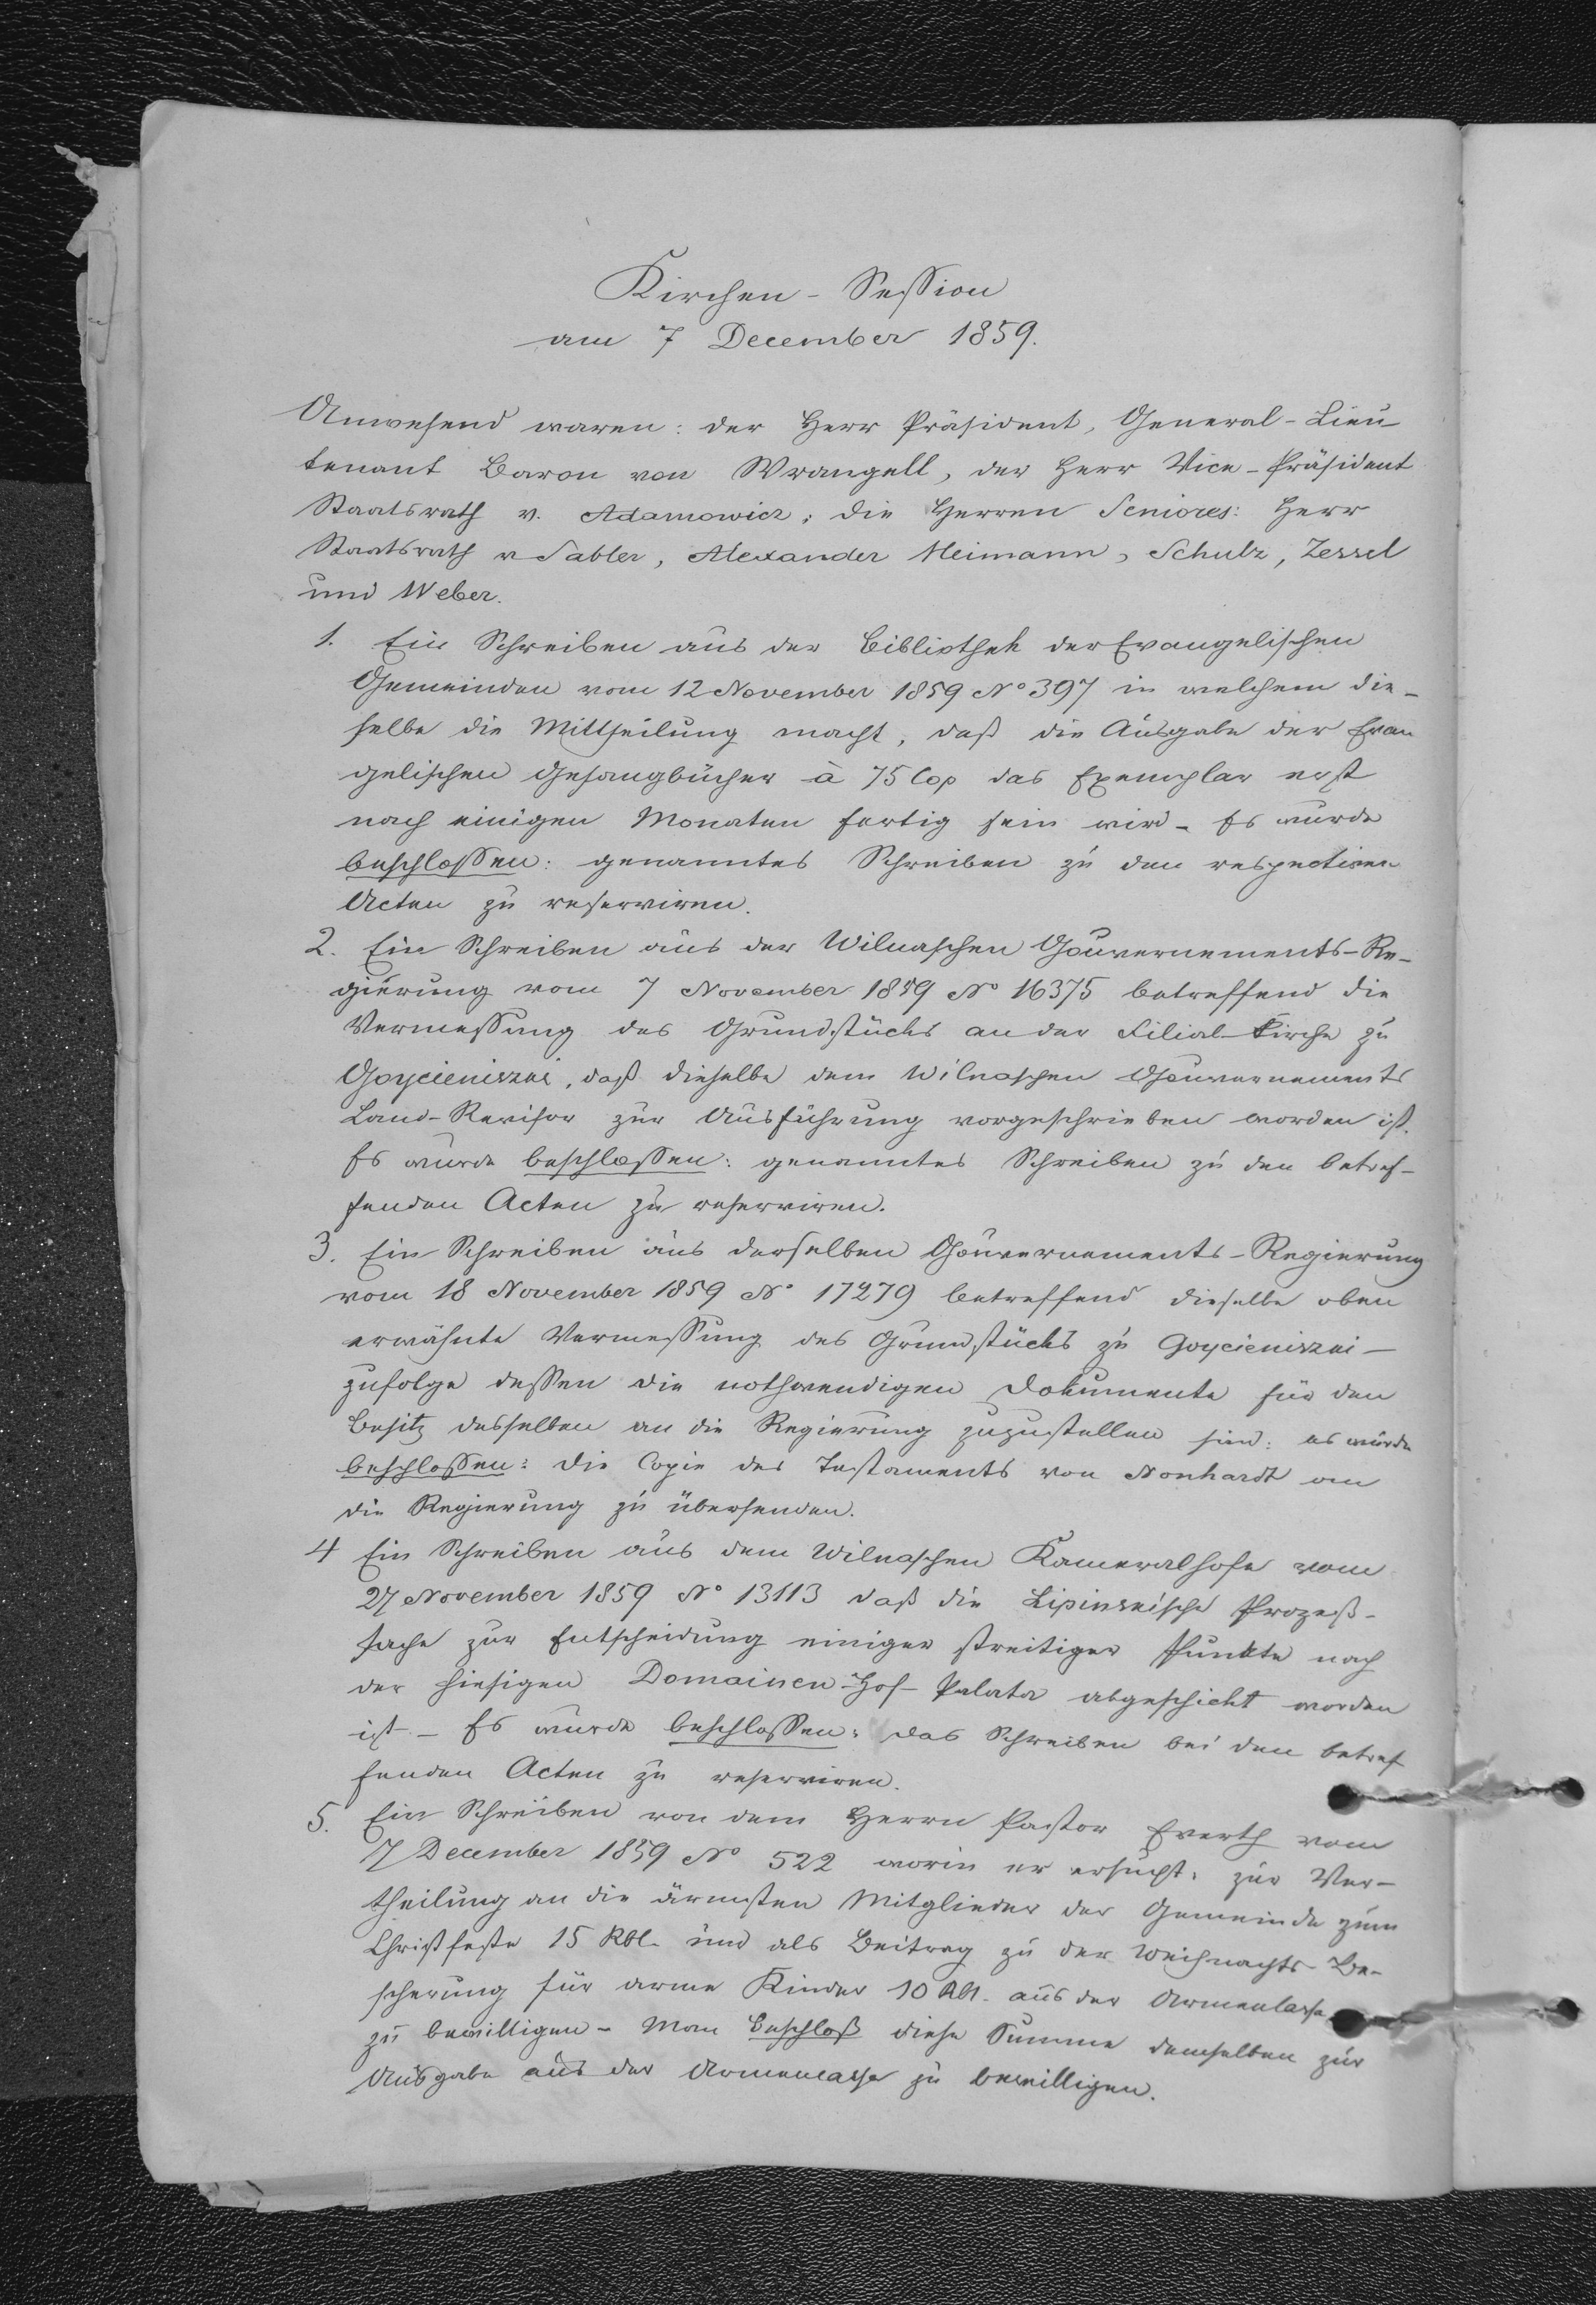 Kirchen-Session
am 7 December 1859.
Anwesend waren: der Herr Präsident, General-Lieu-
tenant Baron von Wrangell, der Herr Vice-Präsident
Staatsrath v. Adamowicz; die Herren Seniores: Herr
Staatsrath v Sabler, Alexander Heimann, Schulz, Zessel
und Weber.
1. Ein Schreiben aus der Bibliothek der Evangelischen
Gemeinden vom 12 November 1859 No 397 in welchem die-
selbe die Mittheilung macht, daß die Ausgabe der Evan
gelischen Gesangbücher à 75 Cop das Exemplar erst
nach einigen Monaten fertig sein wird - Es wurde
beschlossen: genanntes Schreiben zu den respectiven
Acten zu reserviren.
2. Ein Schreiben aus der Wilnaschen Gouvernements-Re-
gierung vom 7 November 1859 No 16375 betreffend die
Vermessung des Grundstücks an der Filial-Kirche zu
Goycieniszki, daß dieselbe dem Wilnaschen Gouvernements
Land-Revisor zur Ausführung vorgeschrieben worden ist.
Es wurde beschlossen: genanntes Schreiben zu den betref-
fenden Acten zu reserviren.
3. Ein Schreiben aus derselben Gouvernements-Regierung
vom 18 November 1859 No 17279 betreffend dieselbe oben
erwähnte Vermessung des Grundstücks zu Goycieniszki -
zufolge dessen die nothwendigen Dokumente für den
Besitz desselben an die Regierung zuzustellen sind: es wurde
beschlossen: die Copie des Testaments von Nonhardt an
die Regierung zu übersenden.
4 Ein Schreiben aus dem Wilnaschen Kameralhofe vom
27 November 1859 No 13113 daß die Lipinskische Prozeß-
sache zur Entscheidung einiger streitiger Punkte nach
der hiesigen Domainen-Hof-Palata abgeschickt worden
ist - Es wurde beschlossen: das Schreiben bei den betref
fenden Acten zu reserviren.
5. Ein Schreiben von dem Herrn Pastor Everth vom
7 December 1859 No 522 worin er ersucht: zur Ver-
theilung an die ärmsten Mitglieder der Gemeinde zum
Christfeste 15 Rbl. und als Beitrag zu der Weihnachts-Be-
scherung für arme Kinder 10 Rbl. aus der Armencasse
zu bewilligen - Man beschloß diese Summe demselben zur
Ausgabe aus der Armencasse zu bewilligen.